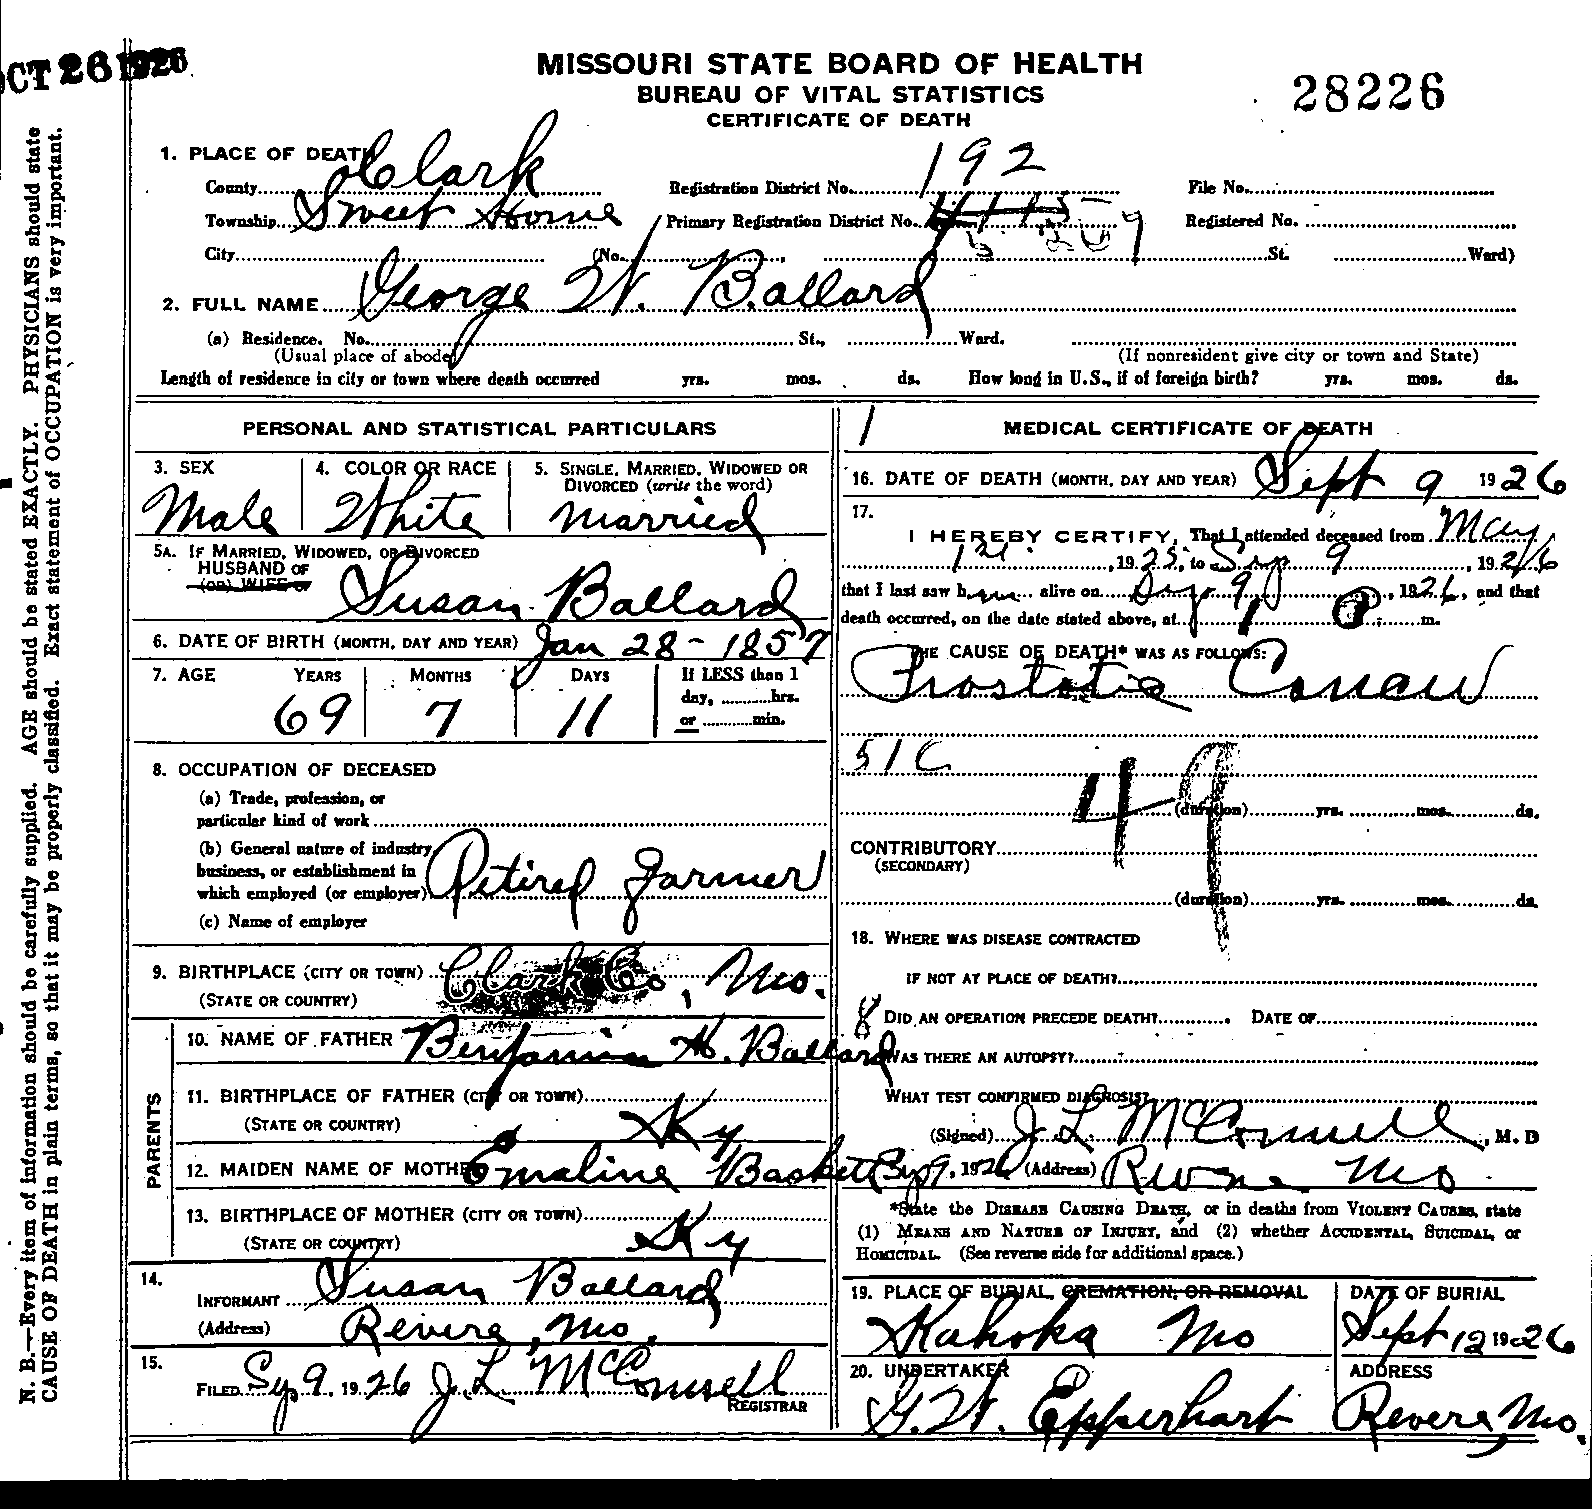 OCT 26 1926
MISSOURI STATE BOARD OF HEALTH
BUREAU OF VITAL STATISTICS
CERTIFICATE OF DEATH
28226
1. PLACE OF DEATH
County Clark Registration District No. 192 File No.
Township Sweet Home Primary Registration District No. 4115 Registered No.
5209
City (No. , St. Ward)
2. FULL NAME George W. Ballard
(a) Residence. No. St., Ward.
(Usual place of abode) (If nonresident give city or town and State)
Length of residence in city or town where death occurred yrs. mos. ds. How long in U.S., if of foreign birth? yrs. mos. ds.
PERSONAL AND STATISTICAL PARTICULARS
3. SEX 4. COLOR OR RACE 5. SINGLE, MARRIED, WIDOWED OR
DIVORCED (write the word)
Male White Married
5A. IF MARRIED, WIDOWED, OR DIVORCED
HUSBAND OF
(OR) WIFE OF Susan Ballard
6. DATE OF BIRTH (MONTH, DAY AND YEAR) Jan 28 - 1857
7. AGE YEARS MONTHS DAYS If LESS than 1
day, hrs.
69 7 11 or min.
8. OCCUPATION OF DECEASED
(a) Trade, profession, or
particular kind of work
(b) General nature of industry,
business, or establishment in
which employed (or employer) Retired Farmer
(c) Name of employer
9. BIRTHPLACE (CITY OR TOWN) Clark Co, Mo.
(STATE OR COUNTRY)
PARENTS
10. NAME OF FATHER Benjamin H. Ballard
11. BIRTHPLACE OF FATHER (CITY OR TOWN)
(STATE OR COUNTRY) Ky
12. MAIDEN NAME OF MOTHER Emaline Baskett
13. BIRTHPLACE OF MOTHER (CITY OR TOWN)
(STATE OR COUNTRY) Ky
14.
INFORMANT Susan Ballard
(Address) Revere, Mo.
15.
FILED Sep 9, 1926 J. L McConnell
REGISTRAR
1
MEDICAL CERTIFICATE OF DEATH
16. DATE OF DEATH (MONTH, DAY AND YEAR) Sept 9 1926
17.
I HEREBY CERTIFY, That I attended deceased from May
1st, 1925, to Sep 9, 1926
that I last saw him alive on Sep 9, 1926, and that
death occurred, on the date stated above, at 1 P m.
THE CAUSE OF DEATH* WAS AS FOLLOWS:
51C
49
(duration) yrs. mos. ds.
CONTRIBUTORY
(SECONDARY)
(duration) yrs. mos. ds.
18. WHERE WAS DISEASE CONTRACTED
IF NOT AT PLACE OF DEATH?
8 DID AN OPERATION PRECEDE DEATH? DATE OF
WAS THERE AN AUTOPSY?
WHAT TEST CONFIRMED DIAGNOSIS?
(Signed) J L McConnell, M. D
Sep 9, 1926 (Address) Revere Mo
*State the DISEASE CAUSING DEATH, or in deaths from VIOLENT CAUSES, state
(1) MEANS AND NATURE OF INJURY, and (2) whether ACCIDENTAL, SUICIDAL, or
HOMICIDAL. (See reverse side for additional space.)
19. PLACE OF BURIAL, CREMATION, OR REMOVAL DATE OF BURIAL
Kahoka Mo Sept 12 1926
20. UNDERTAKER ADDRESS
G. W. Epperhart Revere, Mo.
N. B.—Every item of information should be carefully supplied. AGE should be stated EXACTLY. PHYSICIANS should state
CAUSE OF DEATH in plain terms, so that it may be properly classified. Exact statement of OCCUPATION is very important.